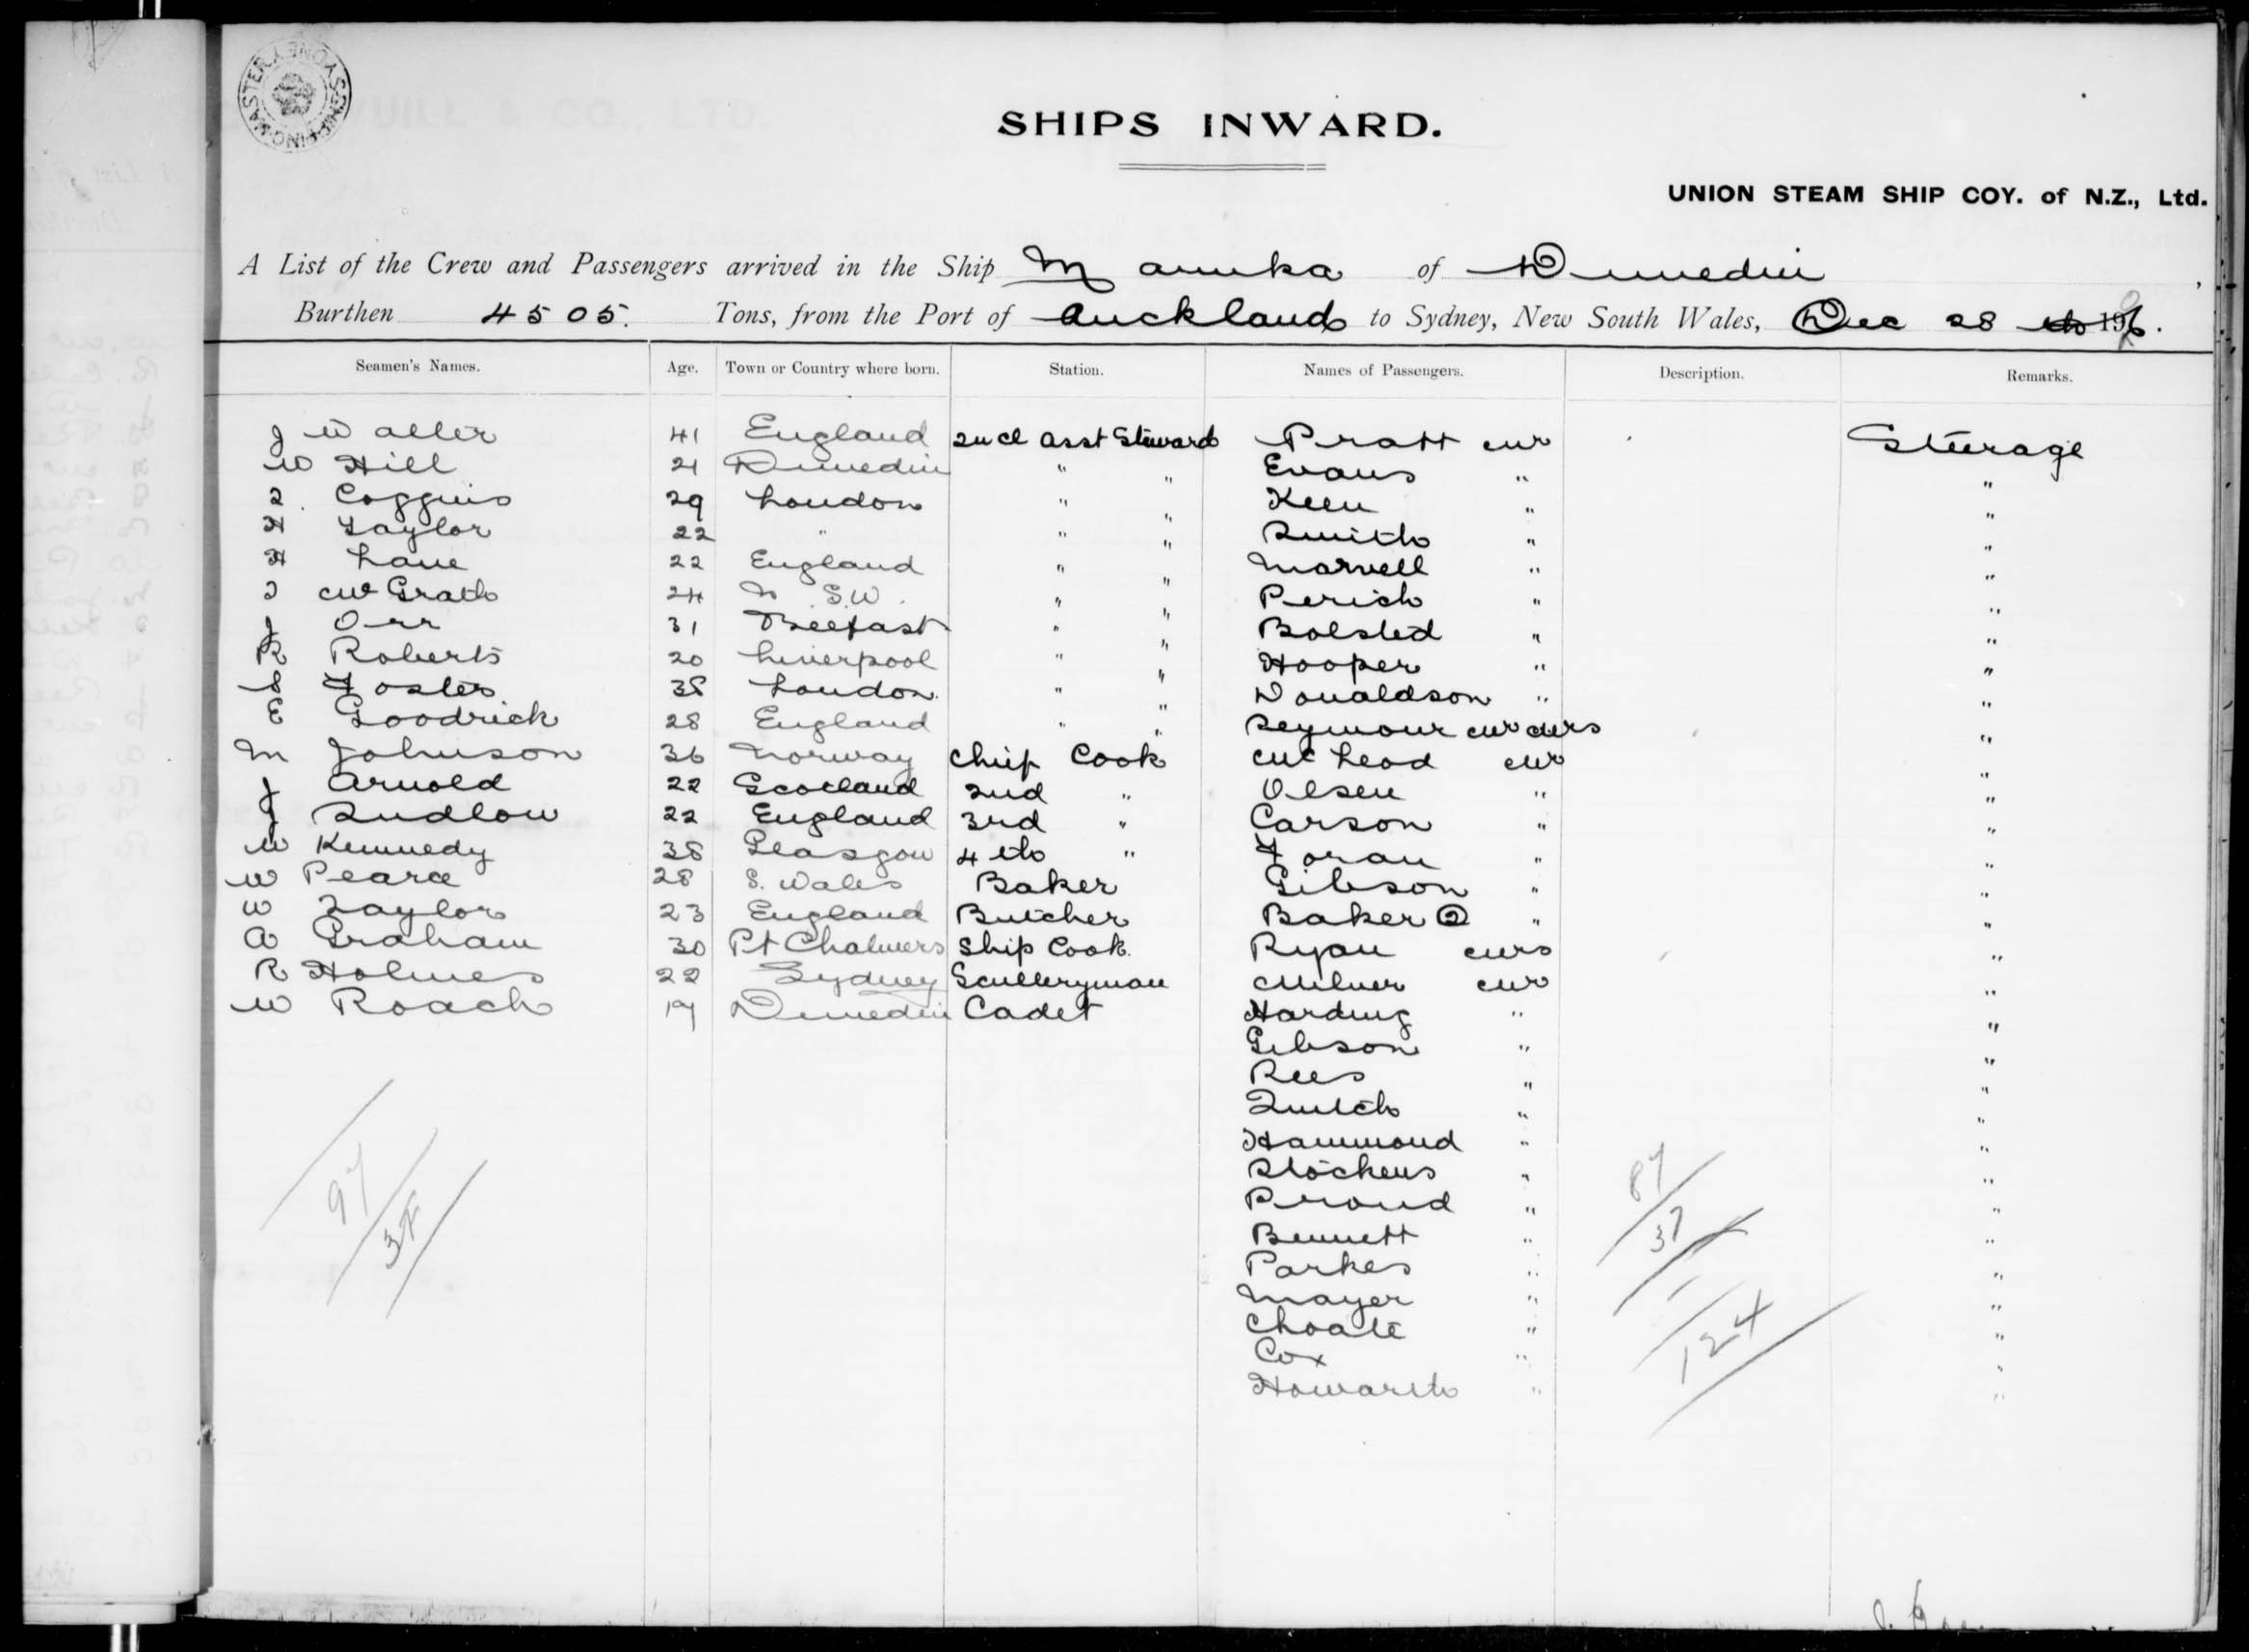 SHIPPING MASTER SYDNEY
SHIPS INWARD.
UNION STEAM SHIP COY. of N.Z., Ltd.
A List of the Crew and Passengers arrived in the Ship Manuka of Dunedin,
Burthen 4505. Tons, from the Port of Auckland to Sydney, New South Wales, Dec 28 th 19
Seamen's Names. Age. Town or Country where born. Station. Names of Passengers. Description. Remarks.
J Waller 41 England 2nd Asst Steward Pratt Mr Steerage
W Hill 21 Dunedin " " Evans " "
Coggins 29 London " " Keen " "
H Taylor 22 " " " Smith " "
H Lane 22 England " " Marvell " "
McGrath 24 N.S.W. " " Perich " "
J Orr 31 Belfast " " Bolsted " "
R Roberts 20 Liverpool " " Hooper " "
S Foster 38 London " " Donaldson " "
E Goodrick 28 England " " Seymour "
M Johnson 36 Norway Chief Cook McLeod Mr "
J Arnold 22 Scotland 2nd " Olsen " "
J Sudlow 22 England 3rd " Carson " "
W Kennedy 38 Glasgow 4th " Foran " "
W Pearce 28 S. Wales Baker Gibson " "
W Taylor 23 England Butcher Baker 2 " "
A Graham 30 Pt Chalmers Ship Cook Ryan Mrs "
R Holmes 22 Sydney Sculleryman Milner Mr "
W Roach 19 Dunedin Cadet Harding " "
Gibson " "
Rees " "
" "
Hammond " "
Stockens " "
Proud " "
Bennett " "
Parkes " "
Mayer " "
Choate " "
Cox " "
Howarth " "
97
37
87
37
124